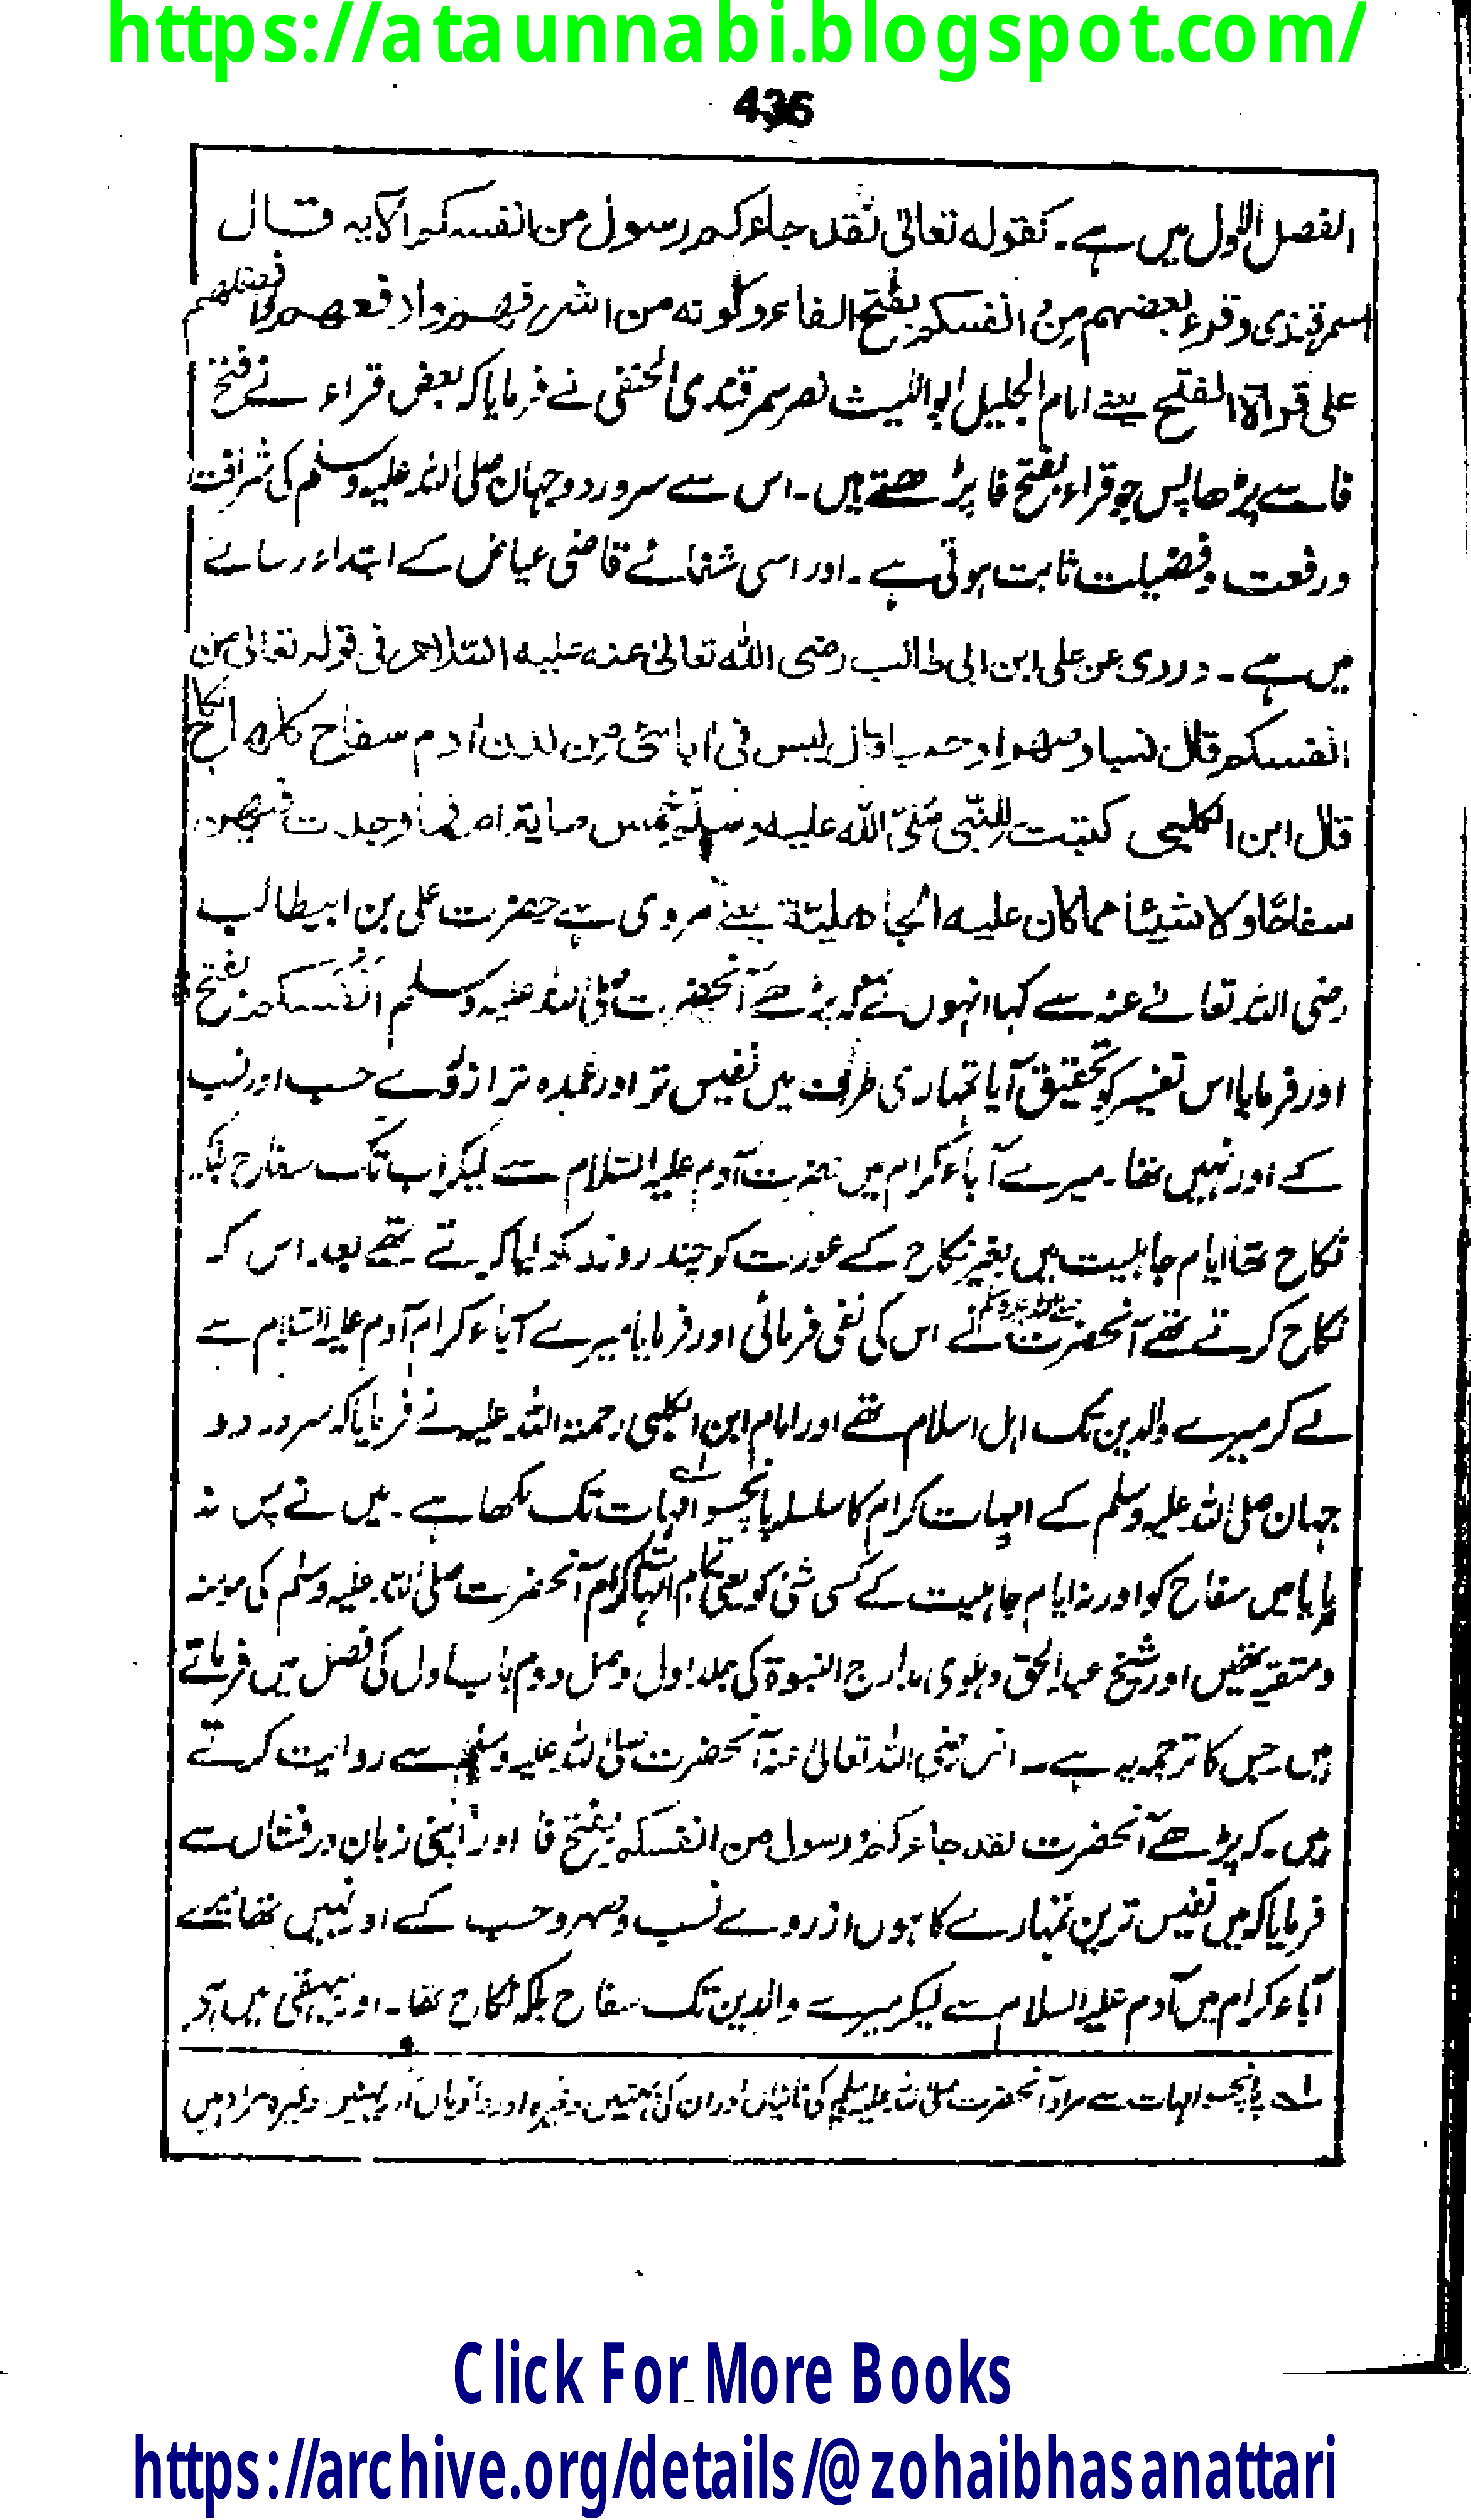 https://ataunnabi.blogspot.com/
436
الفصل الاول میں ہے۔ کقوله تعالیٰ لقد جاءکم رسول من انفسکم الآیه قال
اسمرقندی وقرء بعضهم من انفسکم بفتح الفاء وکونه من اشرفهم وارفعهم وافضلهم
علی قراة الفتح یعنے امام الجلیل ابو اللیث نصر سمرقندی الحنفی نے فرمایا کہ بعض قراء نے فتح
فا سے پڑھا پس جو قراء بفتح فا پڑھتے ہیں۔ اس سے سرور دوجہان صلی اللہ علیہ وسلم کی شرافت
ورفعت وفضیلت ثابت ہوتی ہے۔ اور اسی شفائے قاضی عیاض کے ابتداء رسالے
میں ہے۔ وروی عن علی ابن ابی طالب رضی الله تعالیٰ عنه علیه السلام فی قوله تعالیٰ من
انفسکم قال نسبا وصهرا وحسبا قال لیس فی ابائی من لدن ادم سفاح کلها نکاح
قال ابن الکلبی کتبت للنبی صلی الله علیه وسلم خمس مایة ام فما وجدت فیهن
سفاحًا ولا شیئا مما کان علیه الجاهلیة یعنے مروی ہے حضرت علی بن ابیطالب
رضی اللہ تعالےٰ عنہ سے کہا انہوں نے کہ پڑھے آنحضرت صلی اللہ علیہ وسلم اَنفَسکم بفتح
اور فرمایا اس تفسیر کو تحقیق آیا تمہاری طرف میں نفیس تر اور عمدہ تر ازروئے حسب اور نسب
کے اور نہیں تھا۔ میرے آباء کرام میں حضرت آدم علیہ السلام سے لیکر اب تک سفاح بلکہ
نکاح تھا ایام جاہلیت میں بغیر نکاح کے عورت کو چند روز رکھ لیا کرتے تھے بعد اس کہ
نکاح کرتے تھے آنحضرت صلی اللہ علیہ وسلم نے اس کی نفی فرمائی اور فرمایا میرے آباء کرام آدم علیہ السلام سے
لے کر میرے والدین تک اہل اسلام تھے اور امام ابن الکلبی رحمۃ اللہ علیہ نے فرمایا کہ سرور دو
جہان صلی اللہ علیہ وسلم کے امہات کرام کا سلسلہ پانچسو امہات تک لکھا ہے۔ میں نے پس نہ
پایا میں سفاح کو اور نہ ایام جاہلیت کے کسی شئی کو یعنی تمام امہات کرام آنحضرت صلی اللہ علیہ وسلم کی مومنہ
ومتقیہ تھیں اور شیخ عبد الحق دہلوی مدارج النبوۃ کی جلد اول وصل دوم باب اول کی فصل میں فرماتے
ہیں جس کا ترجمہ یہ ہے۔ انس رضی اللہ تعالیٰ عنہ آنحضرت صلی اللہ علیہ وسلم سے روایت کرتے
ہیں۔ کہ پڑھے آنحضرت لقد جاءکم رسول من انفسکم بفتح فا اور اپنی زبان درفشاں سے
فرمایا کہ میں نفیس ترین تمہارے کا ہوں ازروے نسب وصہر وحسب کے اور نہیں تھا میرے
آباء کرام میں آدم علیہ السلام سے لیکر میرے والدین تک سفاح بلکہ نکاح تھا۔ اور بیہقی میں
لے پانچسو امہات سے مراد آنحضرت صلی اللہ علیہ وسلم کی نانیاں اور ان کی بہنیں وغیرہ اور دادیاں اور بہنیں وغیرہ مراد ہیں
Click For More Books
https://archive.org/details/@zohaibhasanattari